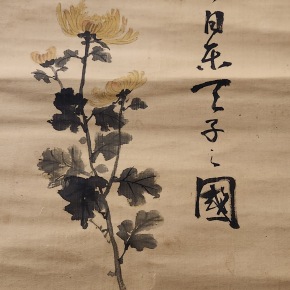 日东天子之國